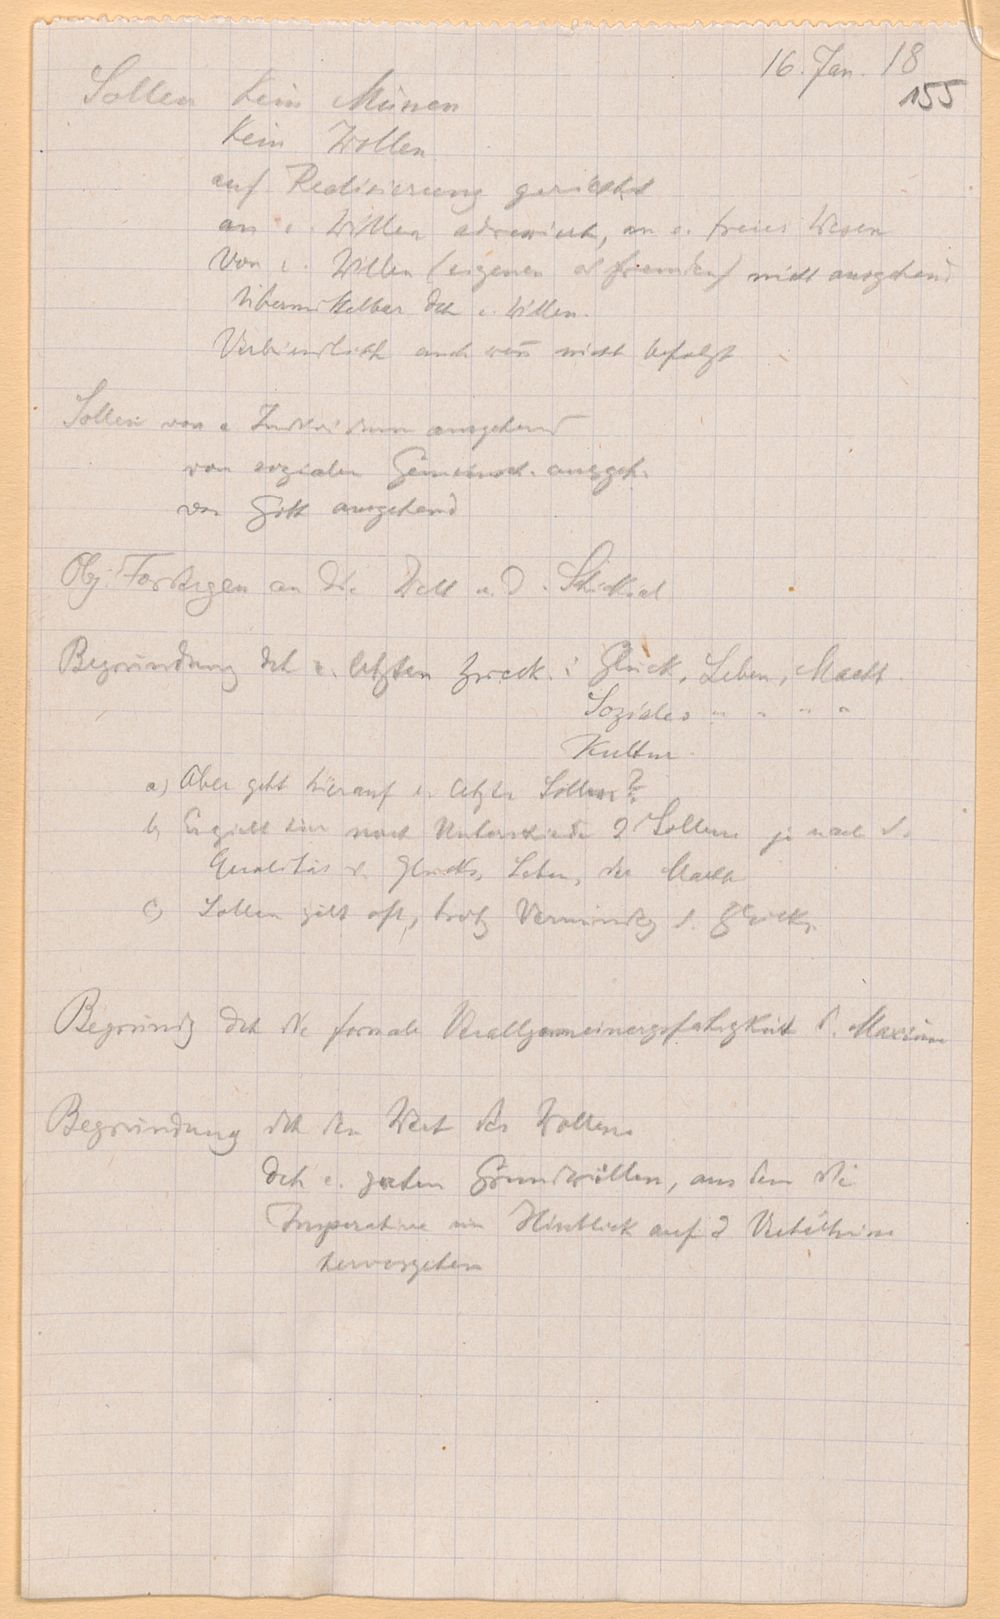 16. Jan. 18
155
Sollen kein Müssen
kein Wollen
auf Realisierung gerichtet
an e. Willen adressiert, an e. freies Wesen
Von e. Willen (eigenen od fremden) nicht ausgehend
Übermittelbar dch e. Willen.
Verbindlich auch wenn nicht befolgt
Sollen von e Individuum ausgehend
von sozialen Gemeinsch. ausgeh.
von Gott ausgehend
Obj. Forderungen an die Welt u. d. Schicksal
Begründung dch e. letzten Zweck: Glück, Leben, Macht
Soziales " " " "
Kultur
a) Aber geht hierauf e. letztes Sollen?
b) Ergiebt sich noch Unterschiede d. Sollens je nach d.
Qualität d. Glücks, Leben, der Macht
c) Sollen gilt oft, trotz Verminderg d. Glücks.
Begründg dch die formale Verallgemeinergsfähigkeit d. Maxime
Begründung dch den Wert des Wollens
dch e. guten Grundwillen, aus dem die
Imperative im Hinblick auf d Verhältnisse
hervorgehen